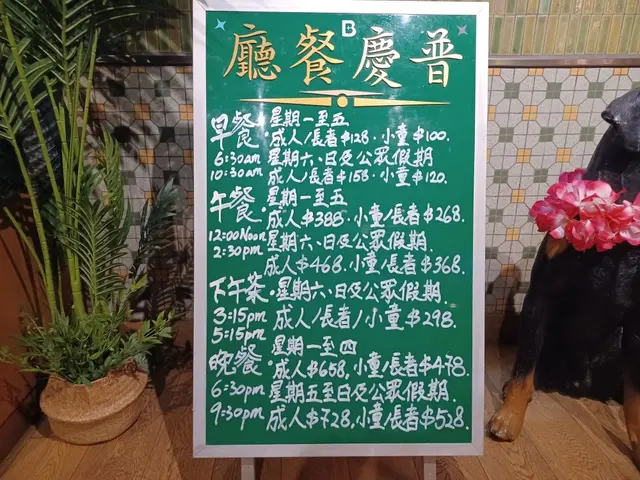 B
廳餐慶普
早餐 星期一至五
成人/長者$128.小童$100.
6:30am 星期六、日及公眾假期
10:30am 成人/長者$158.小童$120.
午餐 星期一至五
成人$388.小童/長者$268.
12:00Noon 星期六、日及公眾假期.
2:30pm 成人$468.小童/長者$368.
下午茶.星期六、日及公眾假期.
3:15pm 成人/長者/小童$298.
5:15pm
晚餐 星期一至四
成人$658,小童/長者$478.
6:30pm 星期五至日及公眾假期.
9:30pm 成人$728,小童/長者$528.